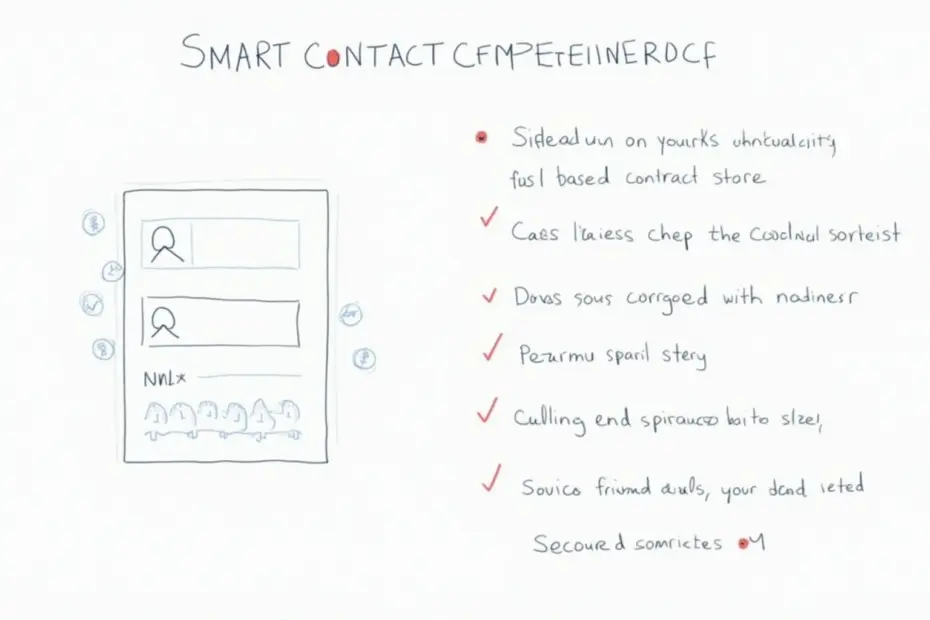 SMART CONTACT CFMPETEIINERDCF
Sideadun on yourks uhntualcity
fusl based contract store
Caes l'aiess chep the Coodnul sorteist
Dovas sous corrgoed with nadinesr
Pezurmu sparil stery
Culling end spirauco baito slze,
NWL*
Sovico friumd auls, your dend veted
Secoured somrictes oy